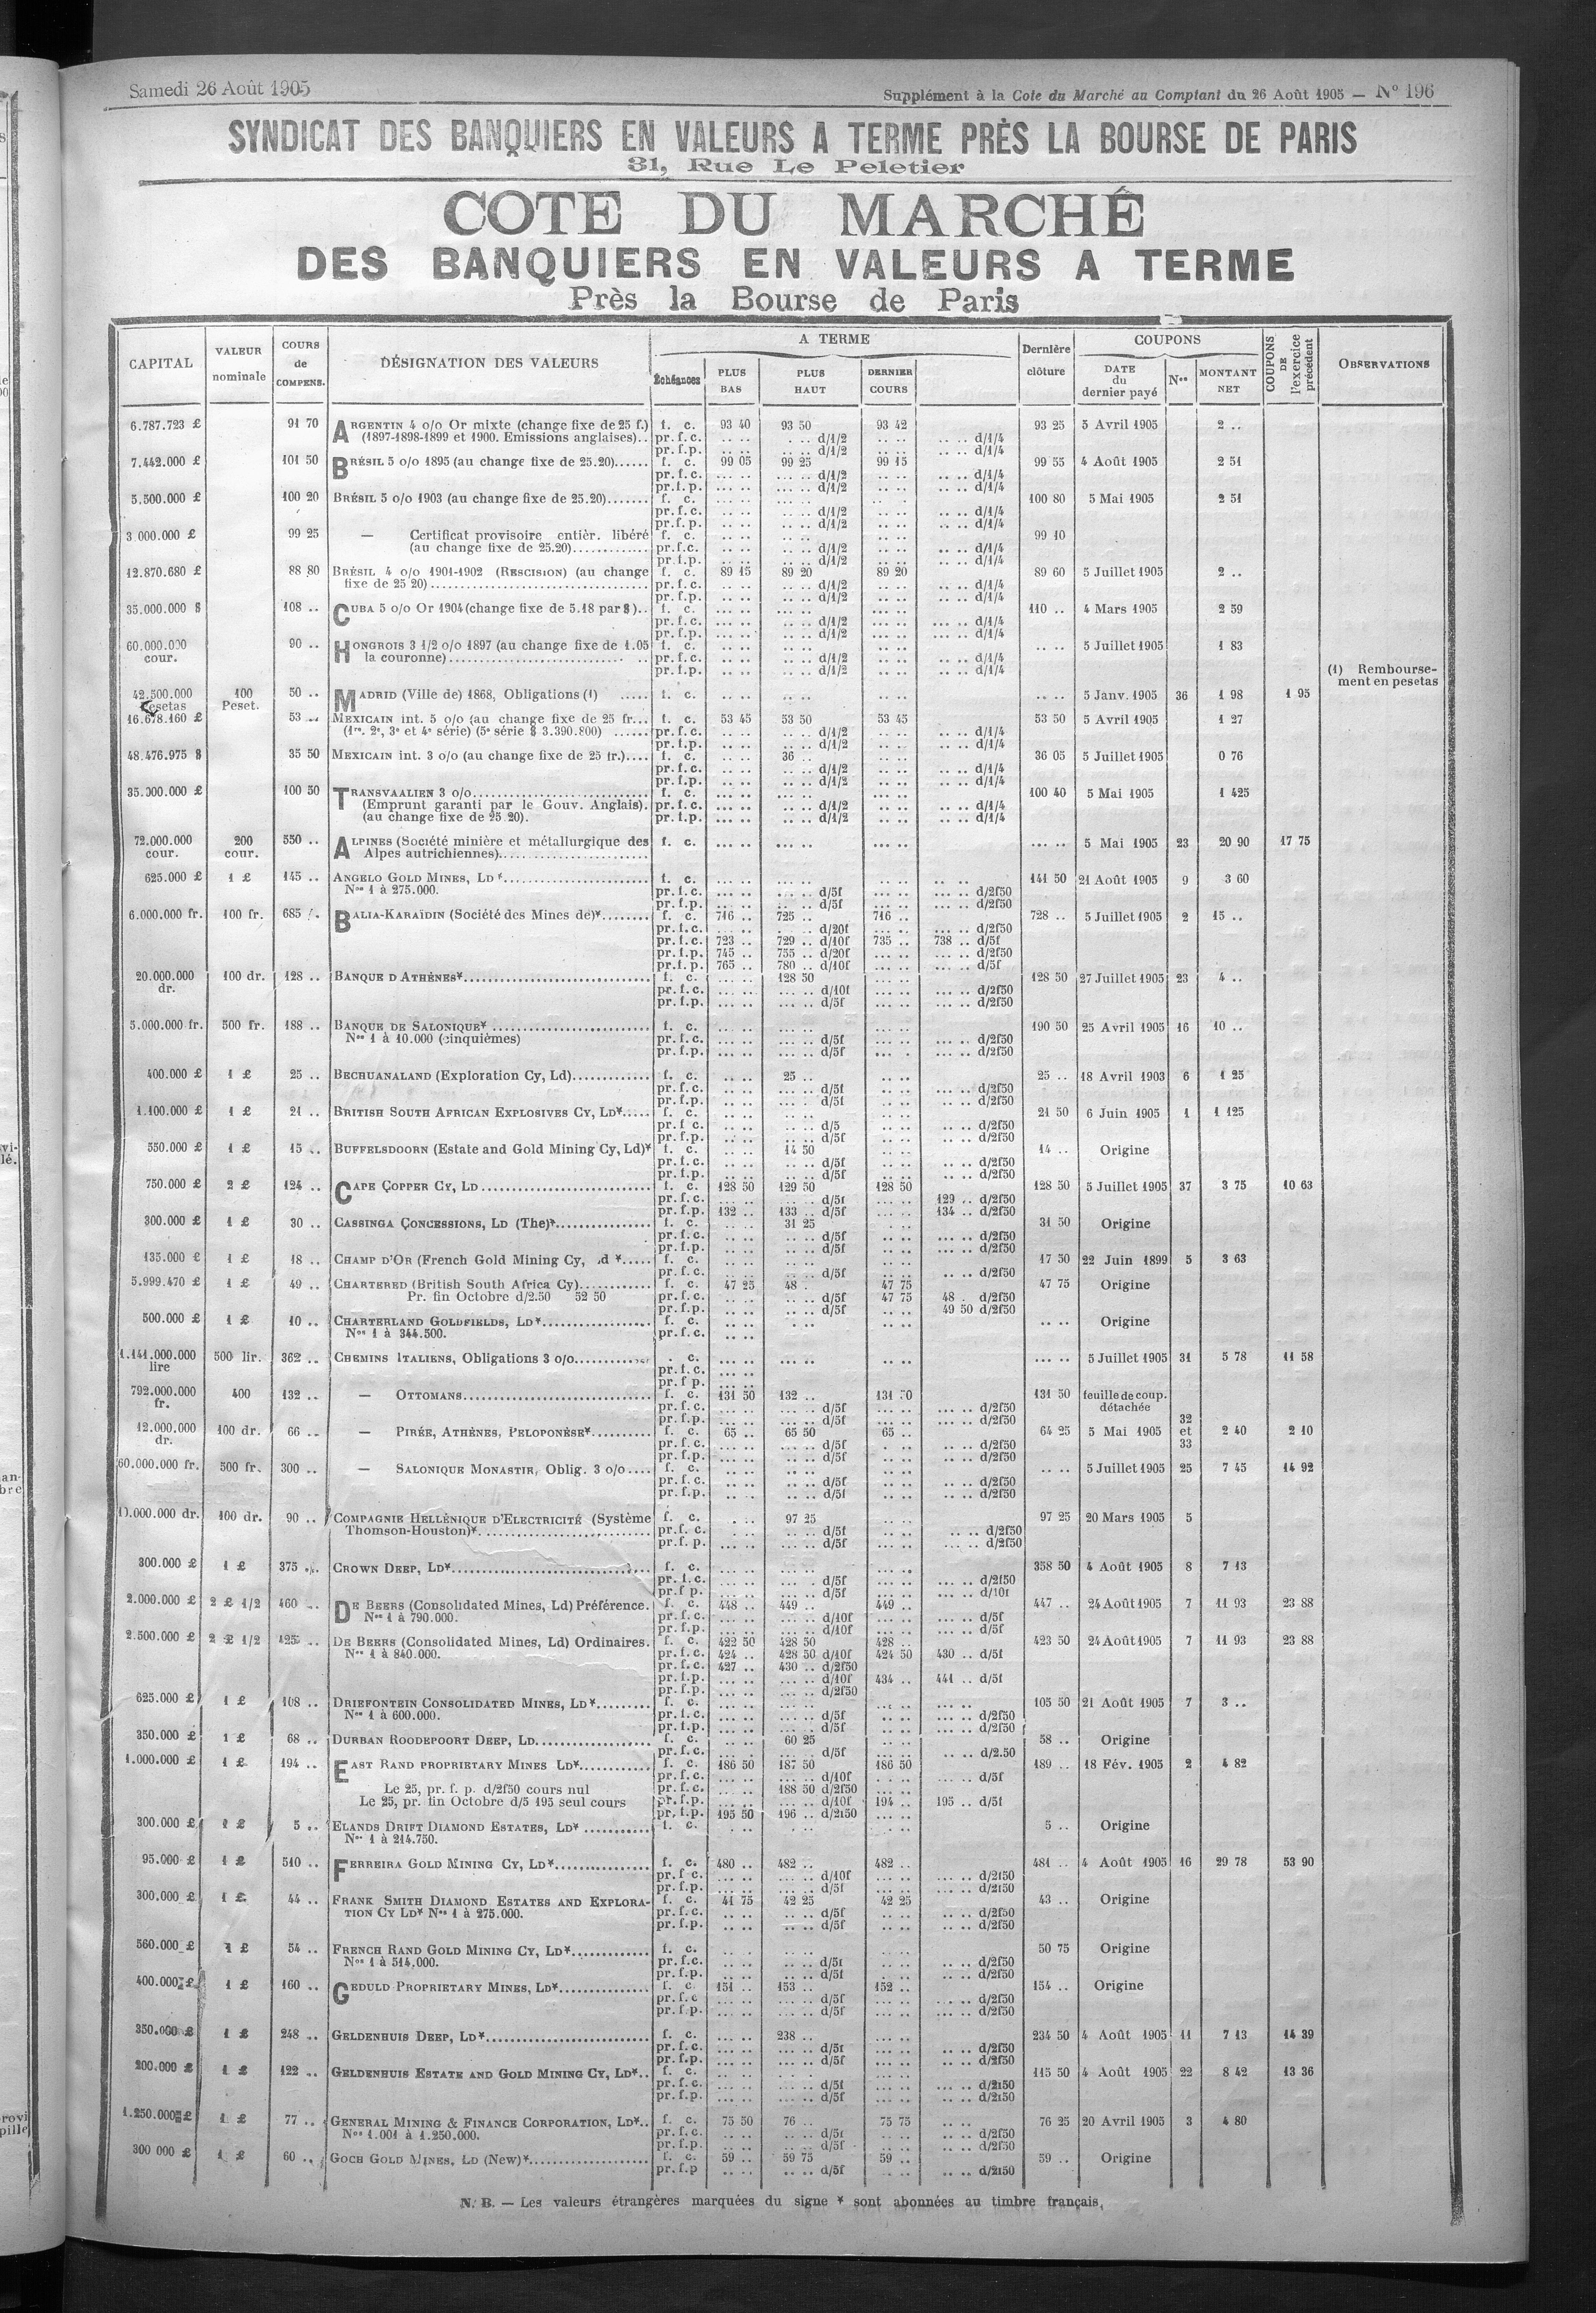 Samedi 26 Août 1905
Supplément à la Cote du Marché au Comptant du 26 Août 1905 — N° 196
SYNDICAT DES BANQUIERS EN VALEURS A TERME PRÈS LA BOURSE DE PARIS
31, Rue Le Peletier
COTE DU MARCHÉ
DES BANQUIERS EN VALEURS A TERME
Près la Bourse de Paris
CAPITAL VALEUR nominale COURS de COMPENS. DÉSIGNATION DES VALEURS A TERME Échéances PLUS BAS PLUS HAUT DERNIER COURS Dernière clôture COUPONS DATE du dernier payé Nos MONTANT NET COUPONS DE l'exercice précédent OBSERVATIONS
6.787.723 £ 91 70 ARGENTIN 4 o/o Or mixte (change fixe de 25 f.) f. c. 93 40 93 50 93 42 93 25 5 Avril 1905 2 ..
(1897-1898-1899 et 1900. Emissions anglaises).. pr.f.c. .. .. .. .. d/1/2 .. .. .. .. d/1/4
pr.f.p. .. .. .. .. d/1/2 .. .. .. .. d/1/4
7.442.000 £ 101 50 BRÉSIL 5 o/o 1895 (au change fixe de 25.20)...... f. c. 99 05 99 25 99 15 99 55 4 Août 1905 2 51
pr.f.c. ... .. ... .. d/1/2 .. .. .. .. d/1/4
pr.f.p. ... .. ... .. d/1/2 .. .. .. .. d/1/4
5.500.000 £ 100 20 BRÉSIL 5 o/o 1903 (au change fixe de 25.20)....... f. c. 100 80 5 Mai 1905 2 51
pr.f.c. .. .. .. .. d/1/2 .. .. .. .. d/1/4
pr.f.p. .. .. .. .. d/1/2 .. .. .. .. d/1/4
3.000.000 £ 99 25 — Certificat provisoire entièr. libéré f. c. 99 10
(au change fixe de 25.20)............. pr.f.c. .. .. .. .. d/1/2 .. .. .. .. d/1/4
pr.f.p. .. .. .. .. d/1/2 .. .. .. .. d/1/4
12.870.680 £ 88 80 BRÉSIL 4 o/o 1901-1902 (RESCISION) (au change f. c. 89 15 89 20 89 20 89 60 5 Juillet 1905 2 ..
fixe de 25 20)..................................... pr.f.c. .. .. .. .. d/1/2 .. .. .. .. d/1/4
pr.f.p. .. .. .. .. d/1/2 .. .. .. .. d/1/4
35.000.000 $ 108 .. CUBA 5 o/o Or 1904 (change fixe de 5.18 par $).. f. c. ... .. ... .. ... .. 110 .. 4 Mars 1905 2 59
pr.f.c. ... .. ... .. d/1/2 ... .. ... .. d/1/4
pr.f.p. ... .. ... .. d/1/2 ... .. ... .. d/1/4
60.000.000 cour. 90 .. HONGROIS 3 1/2 o/o 1897 (au change fixe de 1.05 f. c. .. .. .. .. .. .. .. .. 5 Juillet 1905 1 83
la couronne)............................. pr.f.c. .. .. .. .. d/1/2 .. .. .. .. d/1/4
pr.f.p. .. .. .. .. d/1/2 .. .. .. .. d/1/4
(1) Remboursement en pesetas
42.500.000 Pesetas 100 Peset. 50 .. MADRID (Ville de) 1868, Obligations (1) ..... f. c. .. .. .. .. .. .. .. .. 5 Janv. 1905 36 1 98 1 95
16.678.160 £ 53 .. MEXICAIN int. 5 o/o (au change fixe de 25 fr... f. c. 53 45 53 50 53 45 53 50 5 Avril 1905 1 27
(1re, 2e, 3e et 4e série) (5e série $ 3.390.800) ...... pr.f.c. .. .. .. .. d/1/2 .. .. .. .. d/1/4
pr.f.p. .. .. .. .. d/1/2 .. .. .. .. d/1/4
48.476.975 $ 35 50 MEXICAIN int. 3 o/o (au change fixe de 25 fr.).... f. c. .. .. 36 .. .. .. 36 05 5 Juillet 1905 0 76
pr.f.c. .. .. .. .. d/1/2 .. .. .. .. d/1/4
pr.f.p. .. .. .. .. d/1/2 .. .. .. .. d/1/4
35.000.000 £ 100 50 TRANSVAALIEN 3 o/o............................. f. c. ... .. ... .. ... .. 100 40 5 Mai 1905 1 425
(Emprunt garanti par le Gouv. Anglais). pr.f.c. ... .. .. .. d/1/2 ... .. .. .. d/1/4
(au change fixe de 25.20). pr.f.p. ... .. .. .. d/1/2 ... .. .. .. d/1/4
72.000.000 cour. 200 cour. 550 .. ALPINES (Société minière et métallurgique des f. c. ... .. ... .. ... .. ... .. 5 Mai 1905 23 20 90 17 75
Alpes autrichiennes)........................
625.000 £ 1 £ 145 .. ANGELO GOLD MINES, LD *........................ f. c. ... .. ... .. ... .. 141 50 21 Août 1905 9 3 60
Nos 1 à 275.000. pr.f.c. ... .. ... .. d/5f ... .. ... .. d/2f50
pr.f.p. ... .. ... .. d/5f ... .. ... .. d/2f50
6.000.000 fr. 100 fr. 685 .. BALIA-KARAÏDIN (Société des Mines de)*........ f. c. 716 .. 725 .. 716 .. 728 .. 5 Juillet 1905 2 15 ..
pr.f.c. ... .. ... .. d/20f ... .. ... .. d/2f50
pr.f.c. 723 .. 729 .. d/10f 735 .. 738 .. d/5f
pr.f.p. 745 .. 755 .. d/20f ... .. ... .. d/2f50
pr.f.p. 765 .. 780 .. d/10f ... .. ... .. d/5f
20.000.000 dr. 100 dr. 128 .. BANQUE D'ATHÈNES*............................... f. c. ... .. 128 50 ... .. 128 50 27 Juillet 1905 23 4 ..
pr.f.c. ... .. ... .. d/10f ... .. ... .. d/2f50
pr.f.p. ... .. ... .. d/5f ... .. ... .. d/2f50
5.000.000 fr. 500 fr. 188 .. BANQUE DE SALONIQUE* .......................... f. c. ... .. ... .. ... .. 190 50 25 Avril 1905 16 10 ..
Nos 1 à 10.000 (cinquièmes) pr.f.c. ... .. ... .. d/5f ... .. ... .. d/2f50
pr.f.p. ... .. ... .. d/5f ... .. ... .. d/2f50
400.000 £ 1 £ 25 .. BECHUANALAND (Exploration Cy, Ld)............. f. c. .. .. 25 .. .. .. 25 .. 18 Avril 1903 6 1 25
pr.f.c. .. .. .. .. d/5f .. .. .. .. d/2f50
pr.f.p. .. .. .. .. d/5f .. .. .. .. d/2f50
1.100.000 £ 1 £ 21 .. BRITISH SOUTH AFRICAN EXPLOSIVES CY, LD*..... f. c. .. .. .. .. .. .. 21 50 6 Juin 1905 1 1 125
pr.f.c. .. .. .. .. d/5 .. .. .. .. d/2f50
pr.f.p. .. .. .. .. d/5f .. .. .. .. d/2f50
550.000 £ 1 £ 15 .. BUFFELSDOORN (Estate and Gold Mining Cy, Ld)* f. c. .. .. 14 50 .. .. 14 .. Origine
pr.f.c. .. .. .. .. d/5f .. .. .. .. d/2f50
pr.f.p. .. .. .. .. d/5f .. .. .. .. d/2f50
750.000 £ 2 £ 124 .. CAPE COPPER CY, LD............................ f. c. 128 50 129 50 128 50 128 50 5 Juillet 1905 37 3 75 10 63
pr.f.c. ... .. ... .. d/5f ... .. 129 .. d/2f50
pr.f.p. 132 .. 133 .. d/5f ... .. 134 .. d/2f50
300.000 £ 1 £ 30 .. CASSINGA CONCESSIONS, LD (The)*................ f. c. .. .. 31 25 .. .. 31 50 Origine
pr.f.c. .. .. .. .. d/5f .. .. .. .. d/2f50
pr.f.p. .. .. .. .. d/5f .. .. .. .. d/2f50
135.000 £ 1 £ 18 .. CHAMP D'OR (French Gold Mining Cy, Ld *..... f. c. .. .. .. .. .. .. 17 50 22 Juin 1899 5 3 63
pr.f.c. .. .. .. .. d/5f .. .. .. .. d/2f50
5.999.470 £ 1 £ 49 .. CHARTERED (British South Africa Cy)............ f. c. 47 25 48 .. 47 75 47 75 Origine
Pr. fin Octobre d/2.50 52 50 pr.f.c. .. .. .. .. d/5f 47 75 48 .. d/2f50
pr.f.p. .. .. .. .. d/5f .. .. 49 50 d/2f50
500.000 £ 1 £ 10 .. CHARTERLAND GOLDFIELDS, LD*.................. f. c. .. .. .. .. .. .. .. .. Origine
Nos 1 à 344.500. pr.f.c. .. ..
1.141.000.000 lire 500 lir. 362 .. CHEMINS ITALIENS, Obligations 3 o/o............ f. c. ... .. ... .. .. .. ... .. 5 Juillet 1905 31 5 78 11 58
pr.f.c. ... ..
pr.f.p. ... ..
792.000.000 fr. 400 132 .. — OTTOMANS............................... f. c. 131 50 132 .. 131 50 131 50 feuille de coup. détachée
pr.f.c. ... .. ... .. d/5f ... .. ... .. d/2f50
pr.f.p. ... .. ... .. d/5f ... .. ... .. d/2f50
12.000.000 dr. 100 dr. 66 .. — PIRÉE, ATHÈNES, PELOPONÈSE*.......... f. c. 65 .. 65 50 65 .. 64 25 5 Mai 1905 32 et 33 2 40 2 10
pr.f.c. .. .. .. .. d/5f .. .. .. .. d/2f50
pr.f.p. .. .. .. .. d/5f .. .. .. .. d/2f50
60.000.000 fr. 500 fr. 300 .. — SALONIQUE MONASTIR, Oblig. 3 o/o.... f. c. .. .. .. .. .. .. .. .. 5 Juillet 1905 25 7 45 14 92
pr.f.c. .. .. .. .. d/5f .. .. .. .. d/2f50
pr.f.p. .. .. .. .. d/5f .. .. .. .. d/2f50
100 dr. 90 .. COMPAGNIE HELLÉNIQUE D'ELECTRICITÉ (Système f. c. .. .. 97 25 .. .. 97 25 20 Mars 1905 5
Thomson-Houston)*............................ pr.f.c. .. .. .. .. d/5f .. .. .. .. d/2f50
pr.f.p. ... .. ... .. d/5f ... .. ... .. d/2f50
300.000 £ 1 £ 375 .. CROWN DEEP, LD*................................. f. c. ... .. ... .. ... .. 358 50 4 Août 1905 8 7 13
pr.f.c. ... .. ... .. d/5f ... .. ... .. d/2f50
pr.f.p. ... .. ... .. d/5f ... .. ... .. d/10f
2.000.000 £ 2 £ 1/2 460 .. DE BEERS (Consolidated Mines, Ld) Préférence. f. c. 448 .. 449 .. 449 .. 447 .. 24 Août 1905 7 11 93 23 88
Nos 1 à 790.000. pr.f.c. ... .. ... .. d/10f ... .. ... .. d/5f
pr.f.p. ... .. ... .. d/10f ... .. ... .. d/5f
2.500.000 £ 2 £ 1/2 425 .. DE BEERS (Consolidated Mines, Ld) Ordinaires. f. c. 422 50 428 50 428 .. 423 50 24 Août 1905 7 11 93 23 88
Nos 1 à 840.000. pr.f.c. 424 .. 428 50 d/10f 424 50 430 .. d/5f
pr.f.c. 427 .. 430 .. d/2f50
pr.f.p. ... .. ... .. d/10f 434 .. 441 .. d/5f
pr.f.p. ... .. ... .. d/2f50
625.000 £ 1 £ 108 .. DRIEFONTEIN CONSOLIDATED MINES, LD*......... f. c. ... .. ... .. ... .. 105 50 21 Août 1905 7 3 ..
Nos 1 à 600.000. pr.f.c. ... .. ... .. d/5f ... .. ... .. d/2f50
pr.f.p. ... .. ... .. d/5f ... .. ... .. d/2f50
350.000 £ 1 £ 68 .. DURBAN ROODEPOORT DEEP, LD.................. f. c. .. .. 60 25 58 .. Origine
pr.f.c. .. .. .. .. d/5f .. .. d/2.50
1.000.000 £ 1 £ 194 .. EAST RAND PROPRIETARY MINES LD*............. f. c. 186 50 187 50 186 50 189 .. 18 Fév. 1905 2 4 82
pr.f.c. ... .. ... .. d/10f ... .. ... .. d/5f
Le 25, pr. f. p. d/2f50 cours nul pr.f.c. ... .. 188 50 d/2f50
Le 25, pr. fin Octobre d/5 195 seul cours pr.f.p. ... .. ... .. d/10f 194 .. 195 .. d/5f
pr.f.p. 195 50 196 .. d/2f50 ... ..
300.000 £ 1 £ 5 .. ELANDS DRIFT DIAMOND ESTATES, LD* ........... f. c. .. .. .. .. .. .. 5 .. Origine
Nos 1 à 214.750.
95.000 £ 1 £ 510 .. FERREIRA GOLD MINING CY, LD*................ f. c. 480 .. 482 .. 482 .. 481 .. 4 Août 1905 16 29 78 53 90
pr.f.c. ... .. ... .. d/10f ... .. ... .. d/2f50
pr.f.p. ... .. ... .. d/5f ... .. ... .. d/2f50
300.000 £ 1 £ 44 .. FRANK SMITH DIAMOND ESTATES AND EXPLORA- f. c. 41 75 42 25 42 25 43 .. Origine
TION CY LD* Nos 1 à 275.000. pr.f.c. .. .. .. .. d/5f .. .. .. .. d/2f50
pr.f.p. .. .. .. .. d/5f .. .. .. .. d/2f50
560.000 £ 1 £ 54 .. FRENCH RAND GOLD MINING CY, LD*............. f. c. .. .. .. .. .. .. 50 75 Origine
Nos 1 à 514.000. pr.f.c. .. .. .. .. d/5f .. .. .. .. d/2f50
pr.f.p. .. .. .. .. d/5f .. .. .. .. d/2f50
400.000 £ 1 £ 160 .. GEDULD PROPRIETARY MINES, LD*............... f. c. 151 .. 153 .. 152 .. 154 .. Origine
pr.f.c ... .. ... .. d/5f ... .. ... .. d/2f50
pr.f.p. ... .. ... .. d/5f ... .. ... .. d/2f50
350.000 £ 1 £ 248 .. GELDENHUIS DEEP, LD*........................... f. c. ... .. 238 .. ... .. 234 50 4 Août 1905 11 7 13 14 39
pr.f.c. ... .. ... .. d/5f ... .. ... .. d/2f50
pr.f.p. ... .. ... .. d/5f ... .. ... .. d/2f50
200.000 £ 1 £ 122 .. GELDENHUIS ESTATE AND GOLD MINING CY, LD*.. f. c. ... .. ... .. ... .. 115 50 4 Août 1905 22 8 42 13 36
pr.f.c. ... .. ... .. d/5f ... .. ... .. d/2f50
pr.f.p. ... .. ... .. d/5f ... .. ... .. d/2f50
1.250.000 £ 1 £ 77 .. GENERAL MINING & FINANCE CORPORATION, LD*.. f. c. 75 50 76 .. 75 75 .. .. 76 25 20 Avril 1905 3 4 80
Nos 1.001 à 1.250.000. pr.f.c. .. .. .. .. d/5f .. .. .. .. d/2f50
pr.f.p. .. .. .. .. d/5f .. .. .. .. d/2f50
300 000 £ 1 £ 60 .. GOCH GOLD MINES, LD (New)*.................... f. c. 59 .. 59 75 59 .. 59 .. Origine
pr.f.p .. .. .. .. d/5f .. .. d/2f50
N. B. — Les valeurs étrangères marquées du signe * sont abonnées au timbre français.